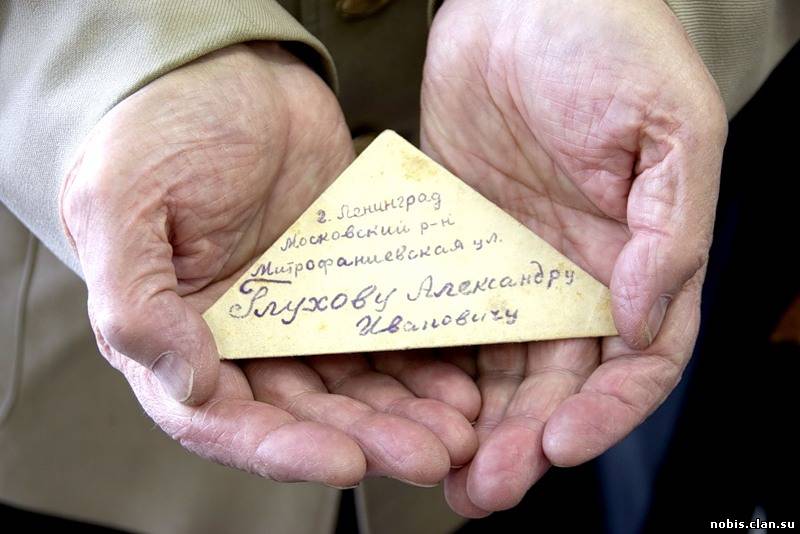 г. Ленинград
Московский р-н
Митрофаниевская ул.
Глухову Александру
Ивановичу
nobis.clan.su